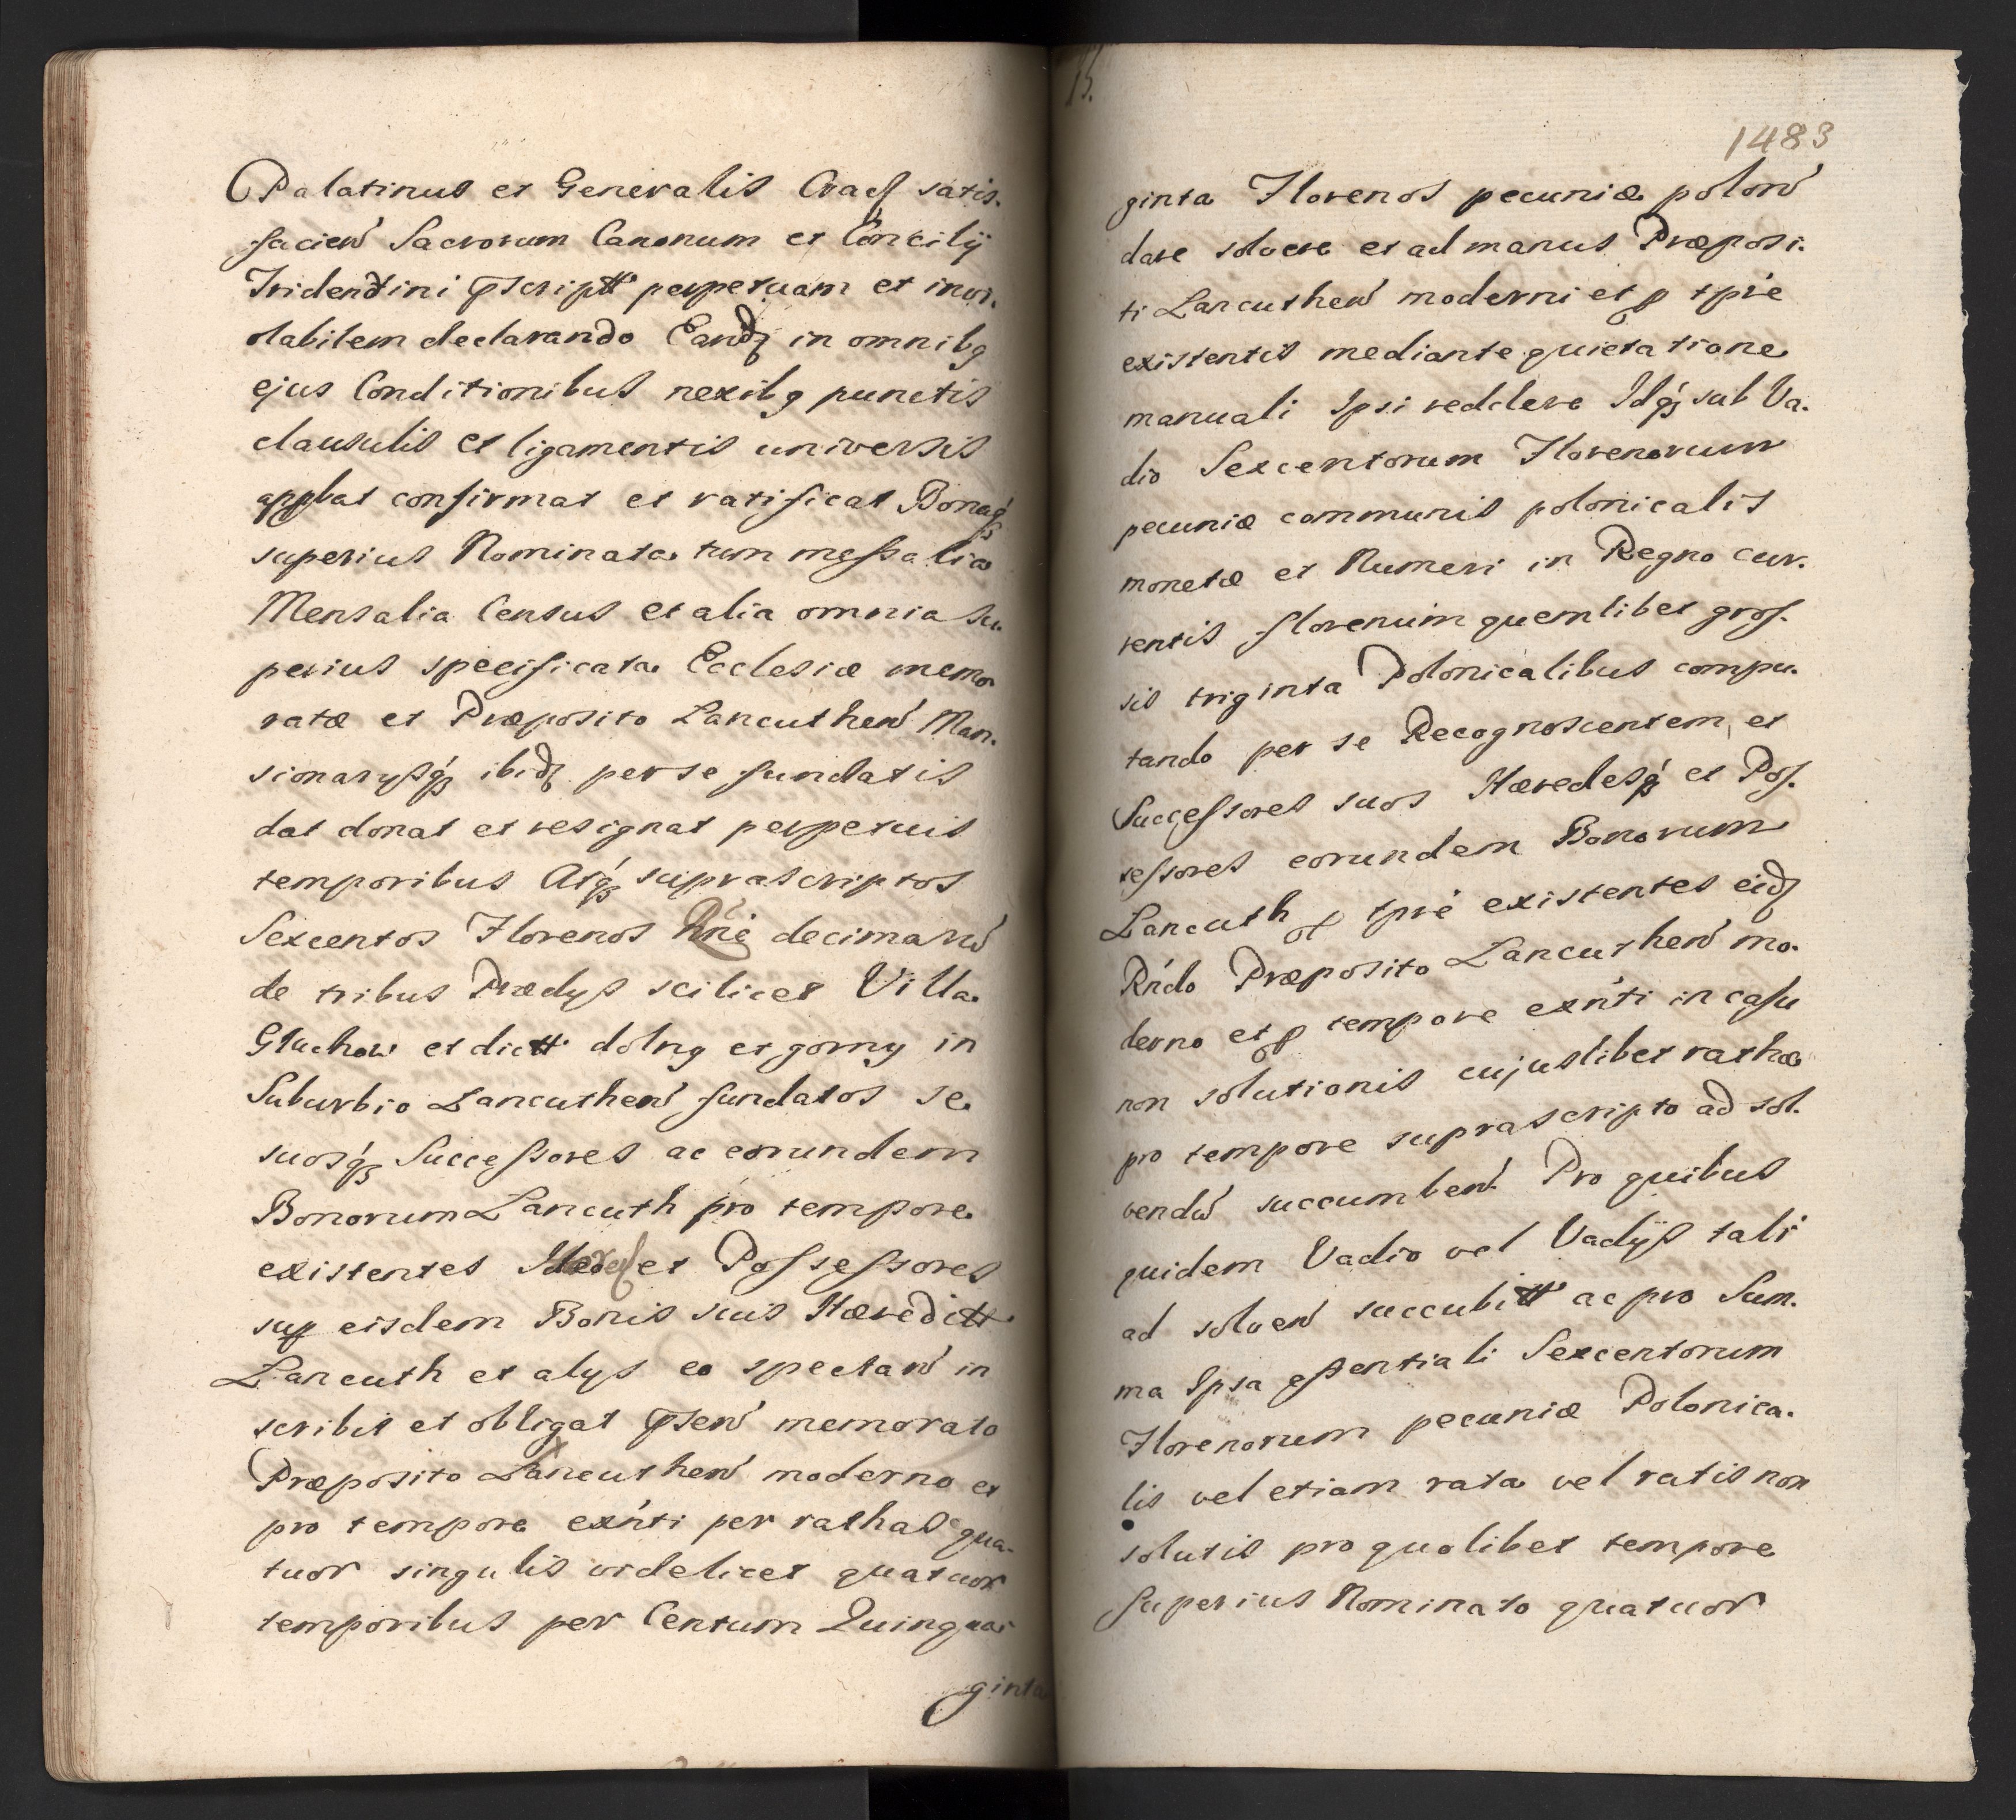 Palatinus et Generalis Crac satis.
facien Sacrorum Canonum et Concilÿ
Tridentini pscriptt perpetuam et invi.
olabilem declarando Eandq in omnibq
ejus Conditionibus nexibq punctis
clausulis et ligamentis universis
appbat confirmat et ratificat Bonaq
superius Nominata tum messalia
Mensalia Census et alia omnia su.
perius specificata Ecclesiæ memo
ratæ et Præposito Lancuthen Man.
sionarysq ibidq per se fundatis
dat donat et resignat perpetuis
temporibus Atq suprascriptos
Sexcentos Florenos Rne decimarú
de tribus Prædys scilicet Villa
Gluchow et dictt dolny et gorny in
Suburbio Lancuthen fundatos se
suosq Successores ac eorundem
Bonorum Lancuth pro tempore
existentes et Possessores
sup eisdem Bonis suis Hæreditt
Lancuth et alys eo spectan in
scribit et obligat psen memorato
Præposito Lancuthen moderno et
pro tempore exńti per rathas qua.
tuor singulis videlicet quatuor
temporibus per Centum Quinqua
ginta
15.
1483
ginta Florenos pecuniæ polon
dare solvere et ad manus Præposi.
ti Lancuthen moderni et p tpre
existentis mediante quietatione
manuali Ipsi reddere Idq sub Va.
dio Sexcentorum Florenorum
pecuniæ communis polonicalis
monetæ et Numeri in Regno cur.
rentis florenum quemlibet gros.
sis triginta Polonicalibus compu.
tando per se Recognoscentem, et
Successores suos Hæredesq et Pos.
sessores eorundem Bonorum
Lancuth p tpre existentes eidq
Rndo Præposito Lancuthen mo.
derno et p tempore exńti in casu
non solutionis cujuslibet rathæ
pro tempore suprascripto ad sol.
vendú succumben Pro quibus
quidem Vadio vel Vadÿs tali
ad solven succubitt ac pro Sum.
ma Ipsa essentiali Sexcentorum
Florenorum pecuniæ Polonica.
lis vel etiam rata vel ratis non
solutis pro quolibet tempore
superius Nominato quatuor